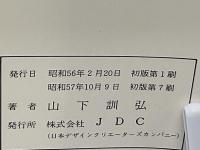 発行日 昭和56年2月20日 初版第1刷
昭和57年10月9日 初版第7刷
著者 山下訓弘
発行所 株式会社 JDC
(日本デザインクリエーターズカンパニー)